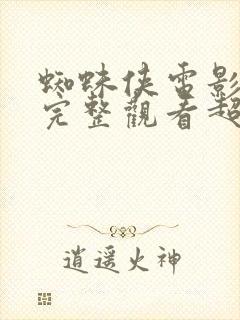 蜘蛛俠電影
完整觀看超
逍遥火神